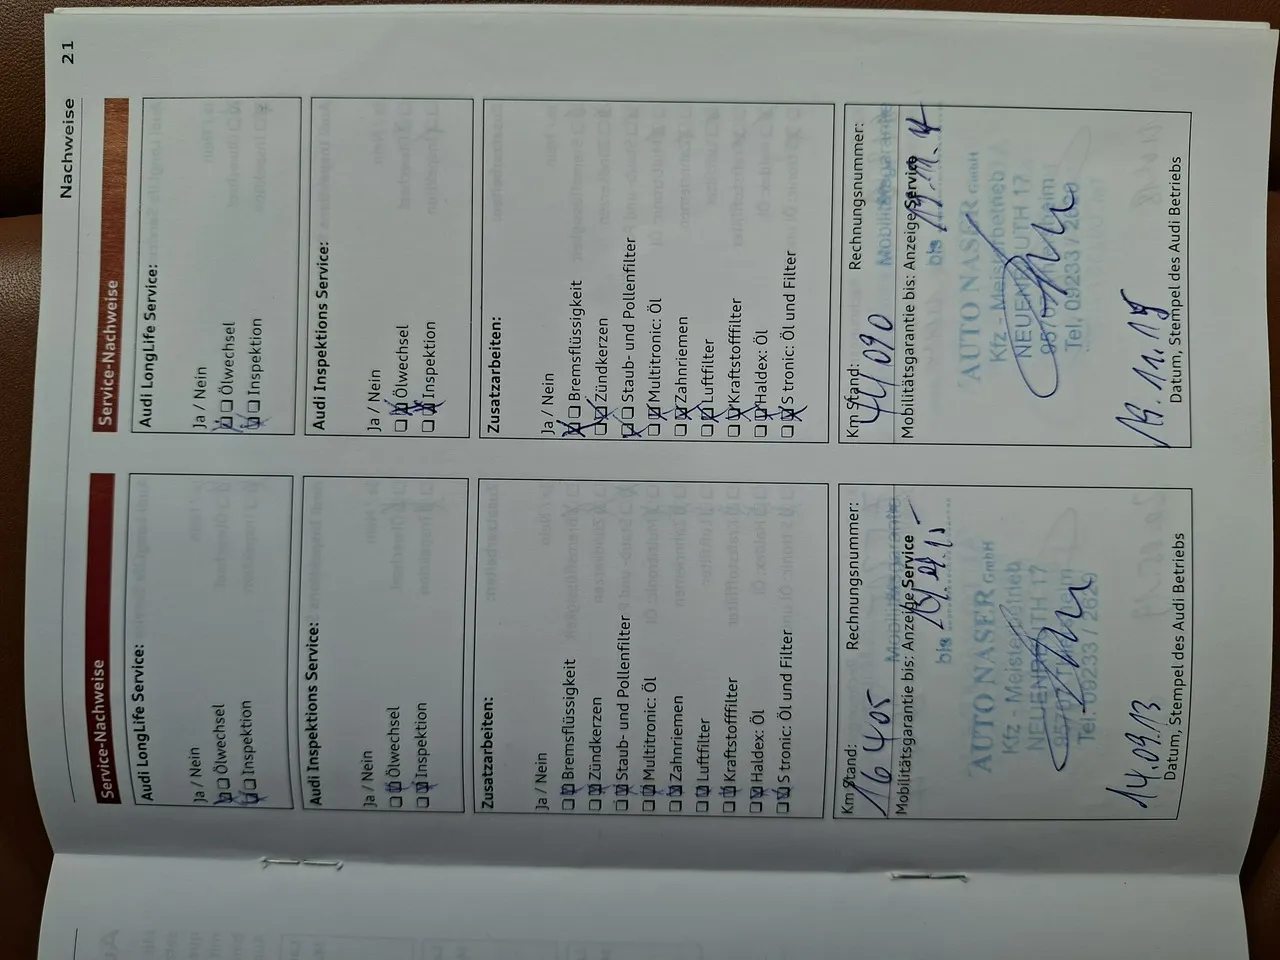 Nachweise 21
Service-Nachweise
Audi LongLife Service:
Ja / Nein
Ölwechsel
Inspektion
Audi Inspektions Service:
Ja / Nein
Ölwechsel
Inspektion
Zusatzarbeiten:
Ja / Nein
Bremsflüssigkeit
Zündkerzen
Staub- und Pollenfilter
Multitronic: Öl
Zahnriemen
Luftfilter
Kraftstofffilter
Haldex: Öl
S tronic: Öl und Filter
Km Stand: Rechnungsnummer:
16 405
Mobilitätsgarantie
Mobilitätsgarantie bis: Anzeige Service
bis
AUTO NASER GmbH
Kfz - Meisterbetrieb
NEUENREUTH 17
Tel. 09233 / 2620
14.09.13
Datum, Stempel des Audi Betriebs
Service-Nachweise
Audi LongLife Service:
Ja / Nein
Ölwechsel
Inspektion
Audi Inspektions Service:
Ja / Nein
Ölwechsel
Inspektion
Zusatzarbeiten:
Ja / Nein
Bremsflüssigkeit
Zündkerzen
Staub- und Pollenfilter
Multitronic: Öl
Zahnriemen
Luftfilter
Kraftstofffilter
Haldex: Öl
S tronic: Öl und Filter
Km Stand: Rechnungsnummer:
44 090
Mobilitätsgarantie
Mobilitätsgarantie bis: Anzeige Service
bis
AUTO NASER GmbH
Kfz - Meisterbetrieb
NEUENREUTH 17
Tel. 09233 / 2620
Datum, Stempel des Audi Betriebs